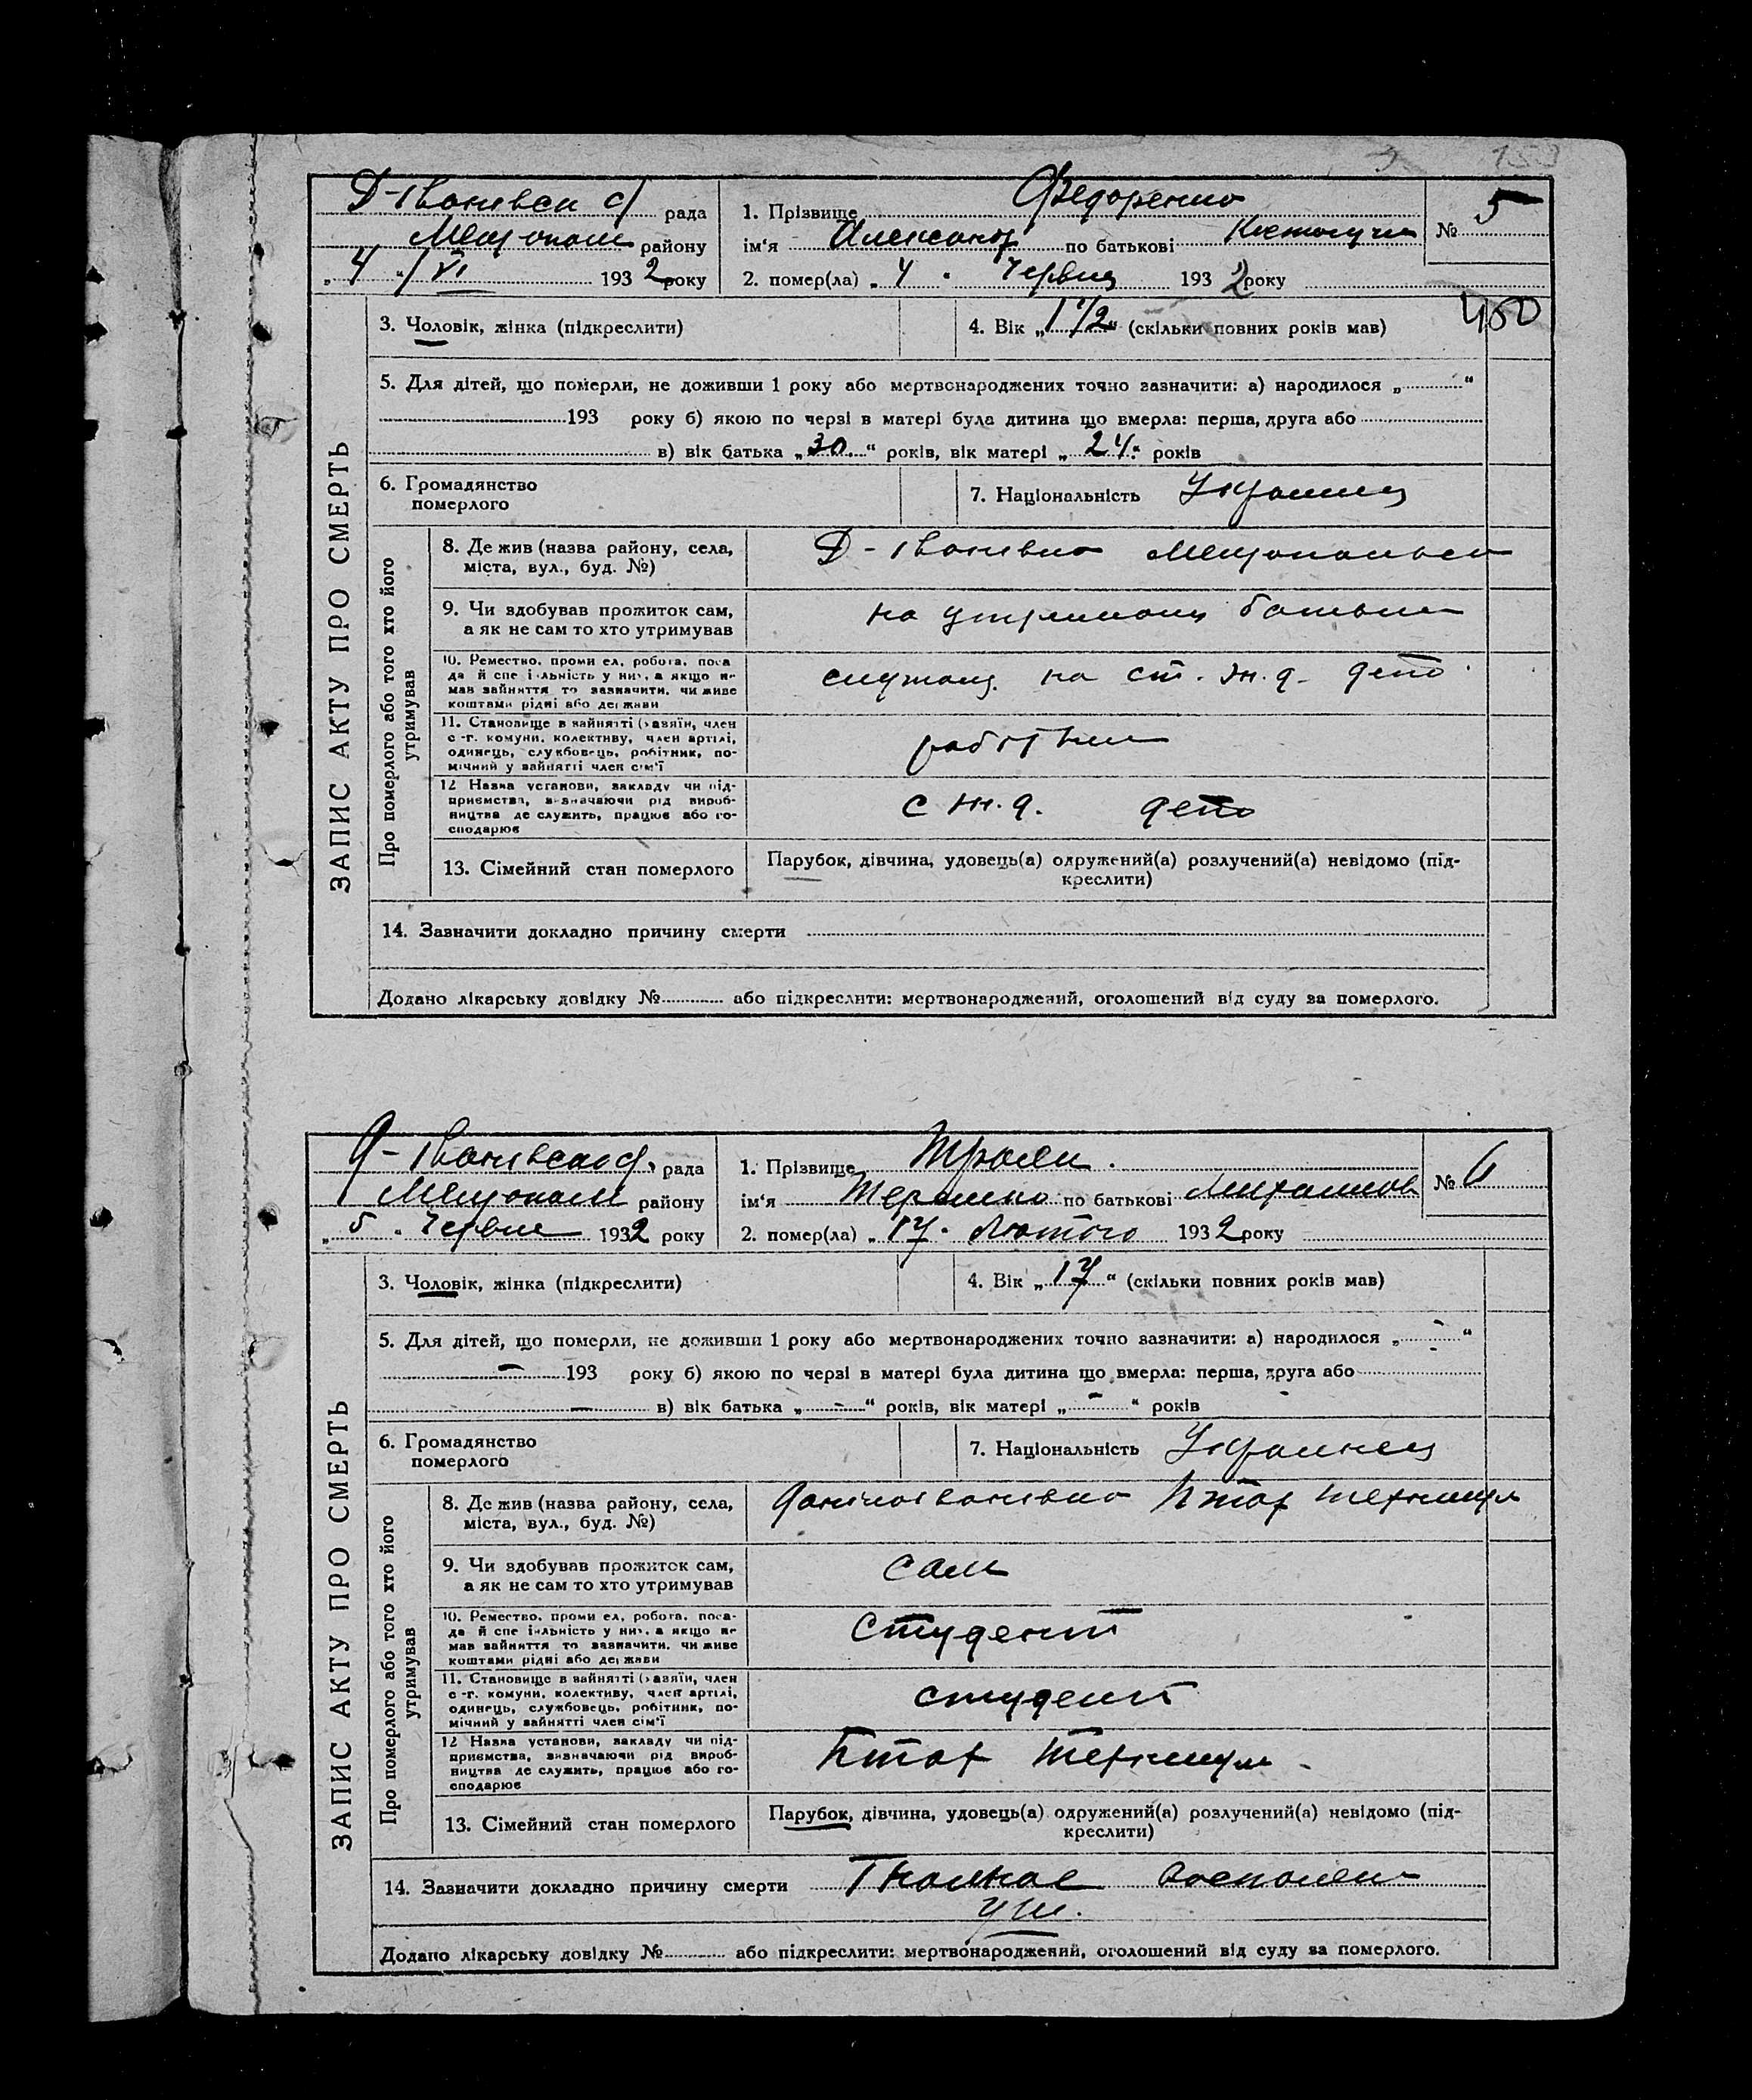 Д-Іванівськ с/ рада
району
„ 4 “ / VI 1932 року
1. Прізвище Федоренко
ім‘я Александр по батькові
2. помер(ла) „ 4 “ Червня 1932 року
№ 5
3. Чоловік, жінка (підкреслити)
4. Вік „ 1 1/2 “ (скільки повних років мав)
450
5. Для дітей, що померли, не доживши 1 року або мертвонароджених точно зазначити: а) народилося „ “
193 року б) якою по черзі в матері була дитина що вмерла: перша, друга або
в) вік батька „ 30 “ років, вік матері „ 24 “ років
6. Громадянство
померлого
7. Національність Українец
ЗАПИС АКТУ ПРО СМЕРТЬ
Про померлого або того хто його
утримував
8. Де жив (назва району, села,
міста, вул., буд. №)
Д-Іванівка
9. Чи здобував прожиток сам,
а як не сам то хто утримував
на утриманні батька
10. Ремество, проми ел, робота, поса
да й спе і льність у них, а якщо не
мав зайняття то зазначити, чи живе
коштами рідні або держави
на ст. ж. д. депо
11. Становище в зайнятті (хазяїн, член
с-г. комуни, колективу, член артілі,
одинець, службовець, робітник, по-
мічний у зайнятті член сім'ї
робітник
12 Назва установи, закладу чи під-
приємства, визначаючи рід вироб-
ництва де служить, працює або го-
сподарює
с ж. д. депо
13. Сімейний стан померлого
Парубок, дівчина, удовець(а) одружений(а) розлучений(а) невідомо (під-
креслити)
14. Зазначити докладно причину смерти
Додано лікарську довідку № або підкреслити: мертвонароджений, оголошений від суду за померлого.
Д-Іванівська с/ рада
району
„ 5 “ Червня 1932 року
1. Прізвище
ім‘я по батькові
2. помер(ла) „ 17 “ Лютого 1932 року
№ 6
3. Чоловік, жінка (підкреслити)
4. Вік „ 17 “ (скільки повних років мав)
5. Для дітей, що померли, не доживши 1 року або мертвонароджених точно зазначити: а) народилося „ - “
- 193 року б) якою по черзі в матері була дитина що вмерла: перша, друга або
- в) вік батька „ - “ років, вік матері „ - “ років
6. Громадянство
померлого
7. Національність Українец
ЗАПИС АКТУ ПРО СМЕРТЬ
Про померлого або того хто його
утримував
8. Де жив (назва району, села,
міста, вул., буд. №)
9. Чи здобував прожиток сам,
а як не сам то хто утримував
сам
10. Ремество, проми ел, робота, поса-
да й спе іяльність у них, а якщо не
мав зайняття то зазначити, чи живе
коштами рідні або держави
Студент
11. Становище в зайнятті (хазяїн, член
с-г. комуни, колективу, член артілі,
одинець, службовець, робітник, по-
мічний у зайнятті член сім'ї
студент
12 Назва установи, закладу чи під-
приємства, визначаючи рід вироб-
ництва де служить, працює або го-
сподарює
13. Сімейний стан померлого
Парубок, дівчина, удовець(а) одружений(а) розлучений(а) невідомо (під-
креслити)
14. Зазначити докладно причину смерти
Додано лікарську довідку № або підкреслити: мертвонароджений, оголошений від суду за померлого.